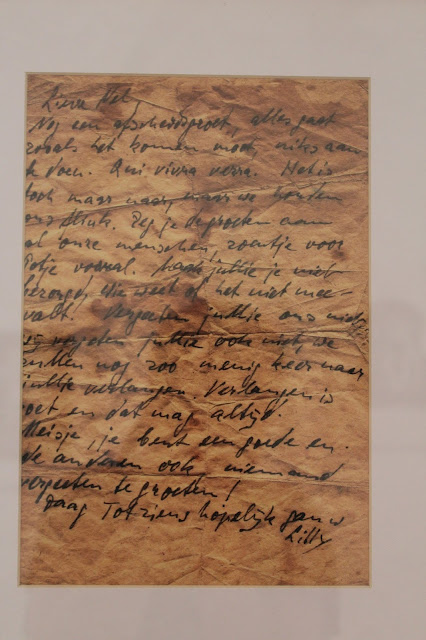 Lieve Nel
Nog een afscheidsgroet, alles gaat
zooals het komen moet, niks aan
te doen. Qui vivra verra. Het is
toch maar naar, maar we houden
ons flink. Zeg je de groeten aan
al onze menschen, zoentje voor
vooral. Maak jullie je niet
bezorgd, wie weet of het niet mee-
valt. Vergeten jullie ons niet,
wij vergeten jullie ook niet, we
zullen nog zoo menig keer naar
jullie verlangen. Verlangen is
goet en dat mag altijd.
Meisje, je bent een goede en
de anderen ook niemand
vergeten te groeten!
Daag Tot ziens hopelijk gauw
Lilly